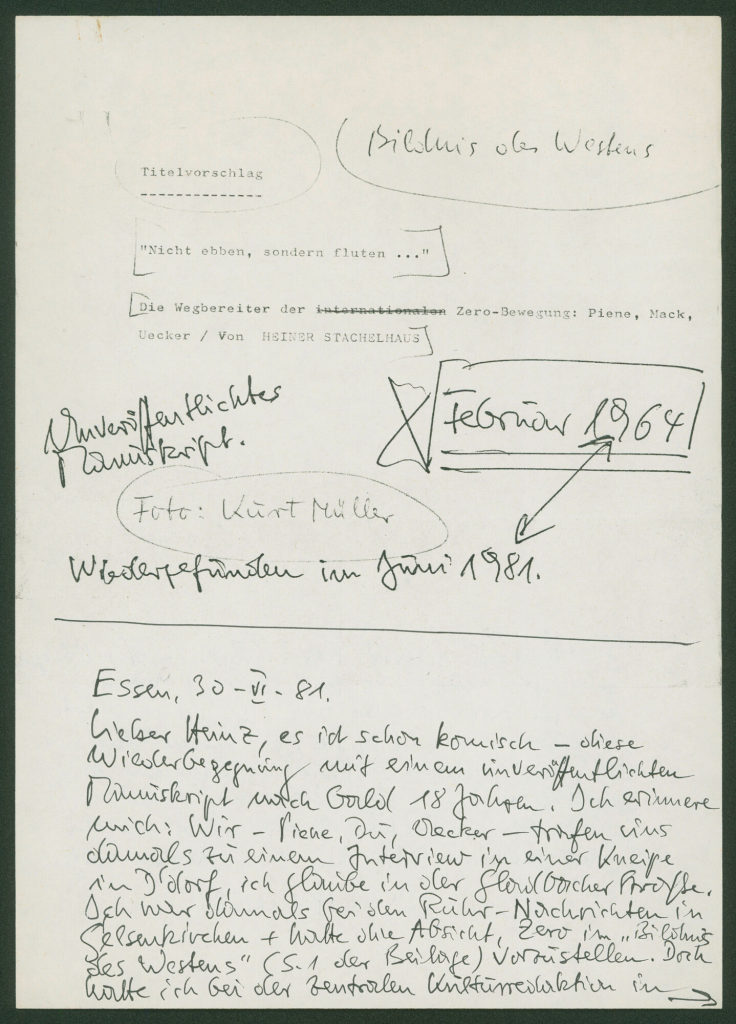 Bildnis des Westens
Titelvorschlag
"Nicht ebben, sondern fluten ..."
Die Wegbereiter der internationalen Zero-Bewegung: Piene, Mack,
Uecker / Von HEINER STACHELHAUS
Unveröffentlichtes
Manuskript.
Februar 1964
Foto: Kurt Müller
Wiedergefunden im Juni 1981.
Essen, 30-VI-81.
Lieber Heinz, es ist schon komisch – diese
Wiederbegegnung mit einem unveröffentlichten
Manuskript nach bald 18 Jahren. Ich erinnere
mich: Wir – Piene, Du, Uecker – trafen uns
damals zu einem Interview in einer Kneipe
in D'dorf, ich glaube in der Gladbacher Straße.
Ich war damals bei den Ruhr-Nachrichten in
Gelsenkirchen + hatte die Absicht, Zero im „Bildnis
des Westens" (S. 1 der Beilage) vorzustellen. Doch
hatte ich bei der zentralen Kulturredaktion in →